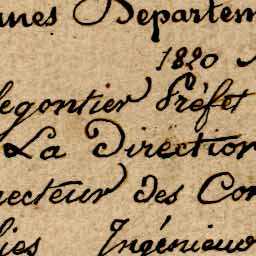 unes Departem
1820
legontier Préfet
La Direction
recteur des Con
lies Ingénieu